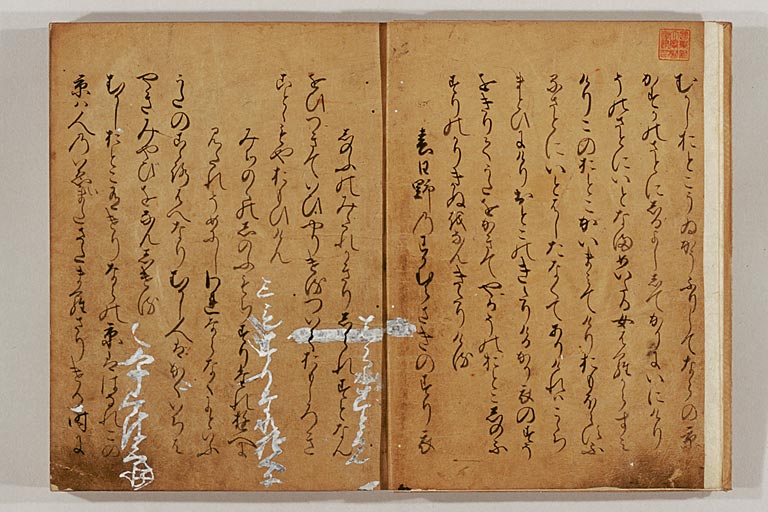 むかしおとこうゐかうふりしてならの京
かすかのさとにしるよしゝてかりにいにけり
そのさとにいとなまめいたる女はらからすみ
けりこのおとこかいまみてけりおもほえすふ
るさとにいとはしたなくてありけれはこゝち
まとひにけりおとこのきたりけるかり衣のすそ
をきりてうたをかきてやるそのおとこしのふ
すりのかりきぬをなんきたりける
春日野のわかむらさきのすり衣
しのふのみたれかきりしられすとなん
をひつきていひやりけるついておもしろき
ことゝもやおもひけん
みちのくのしのふもちすりたれゆへに
みたれそめにし我ならなくにといふ
うたのこゝろはへなりむかし人はかくいちは
やきみやひをなんしける
むかしおとこ有けりならの京ははなれこの
京は人の家またさたまらさりける時に